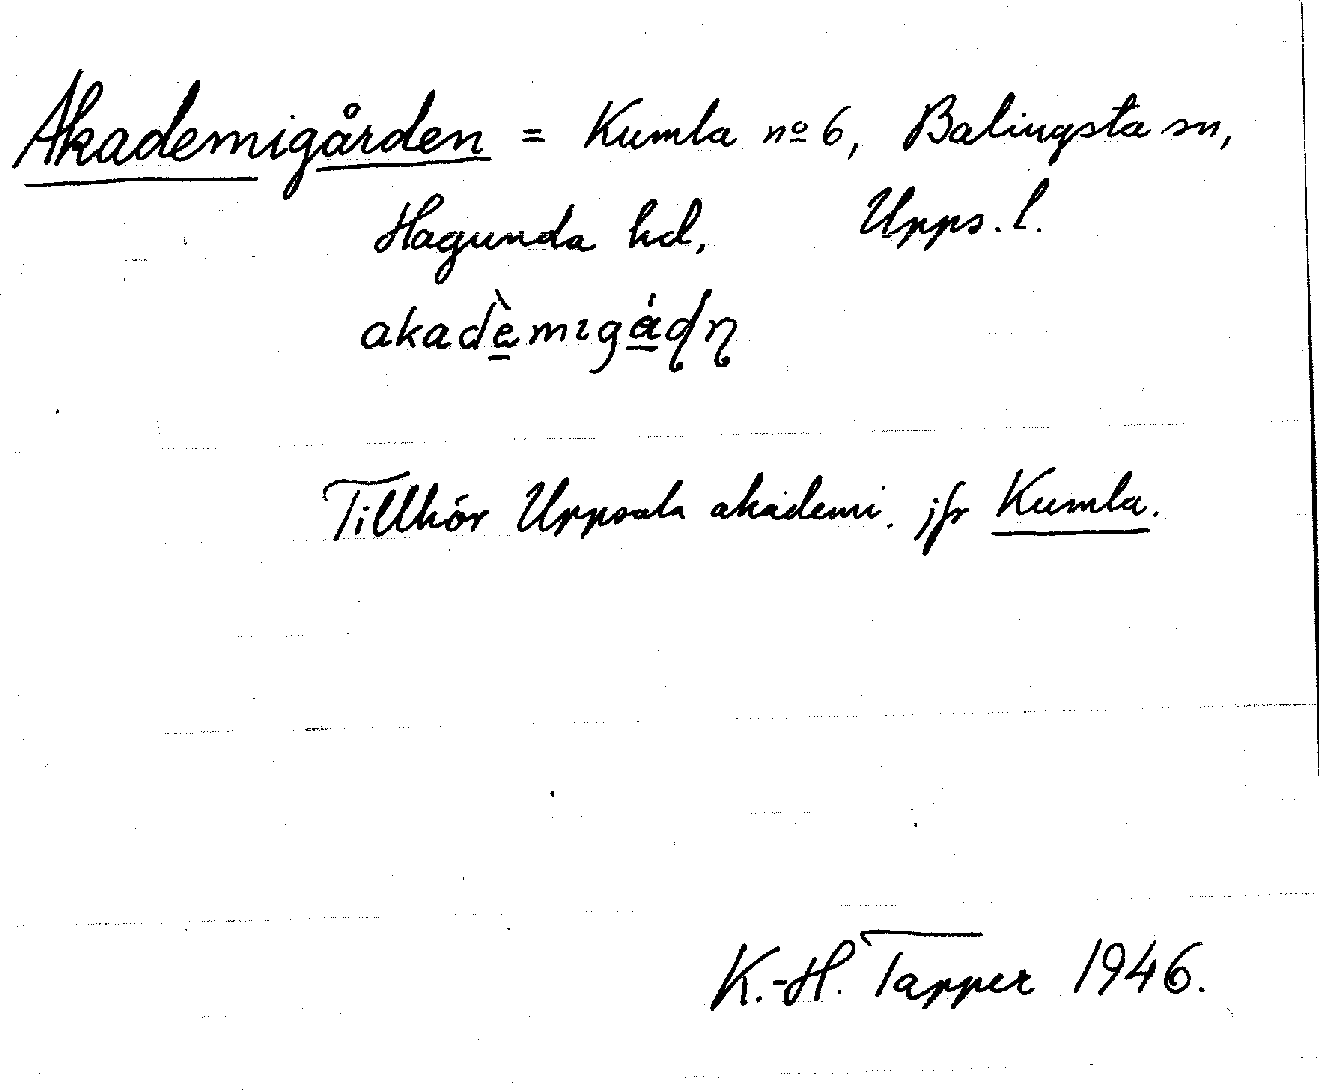 Akademigården = Kumla nº 6, Balingsta sn,
Hagunda hd, Upps. l.
akadèmıgáɖɳ
Tillhör Uppsala akademi. jfr Kumla.
K.-H. Tapper 1946.